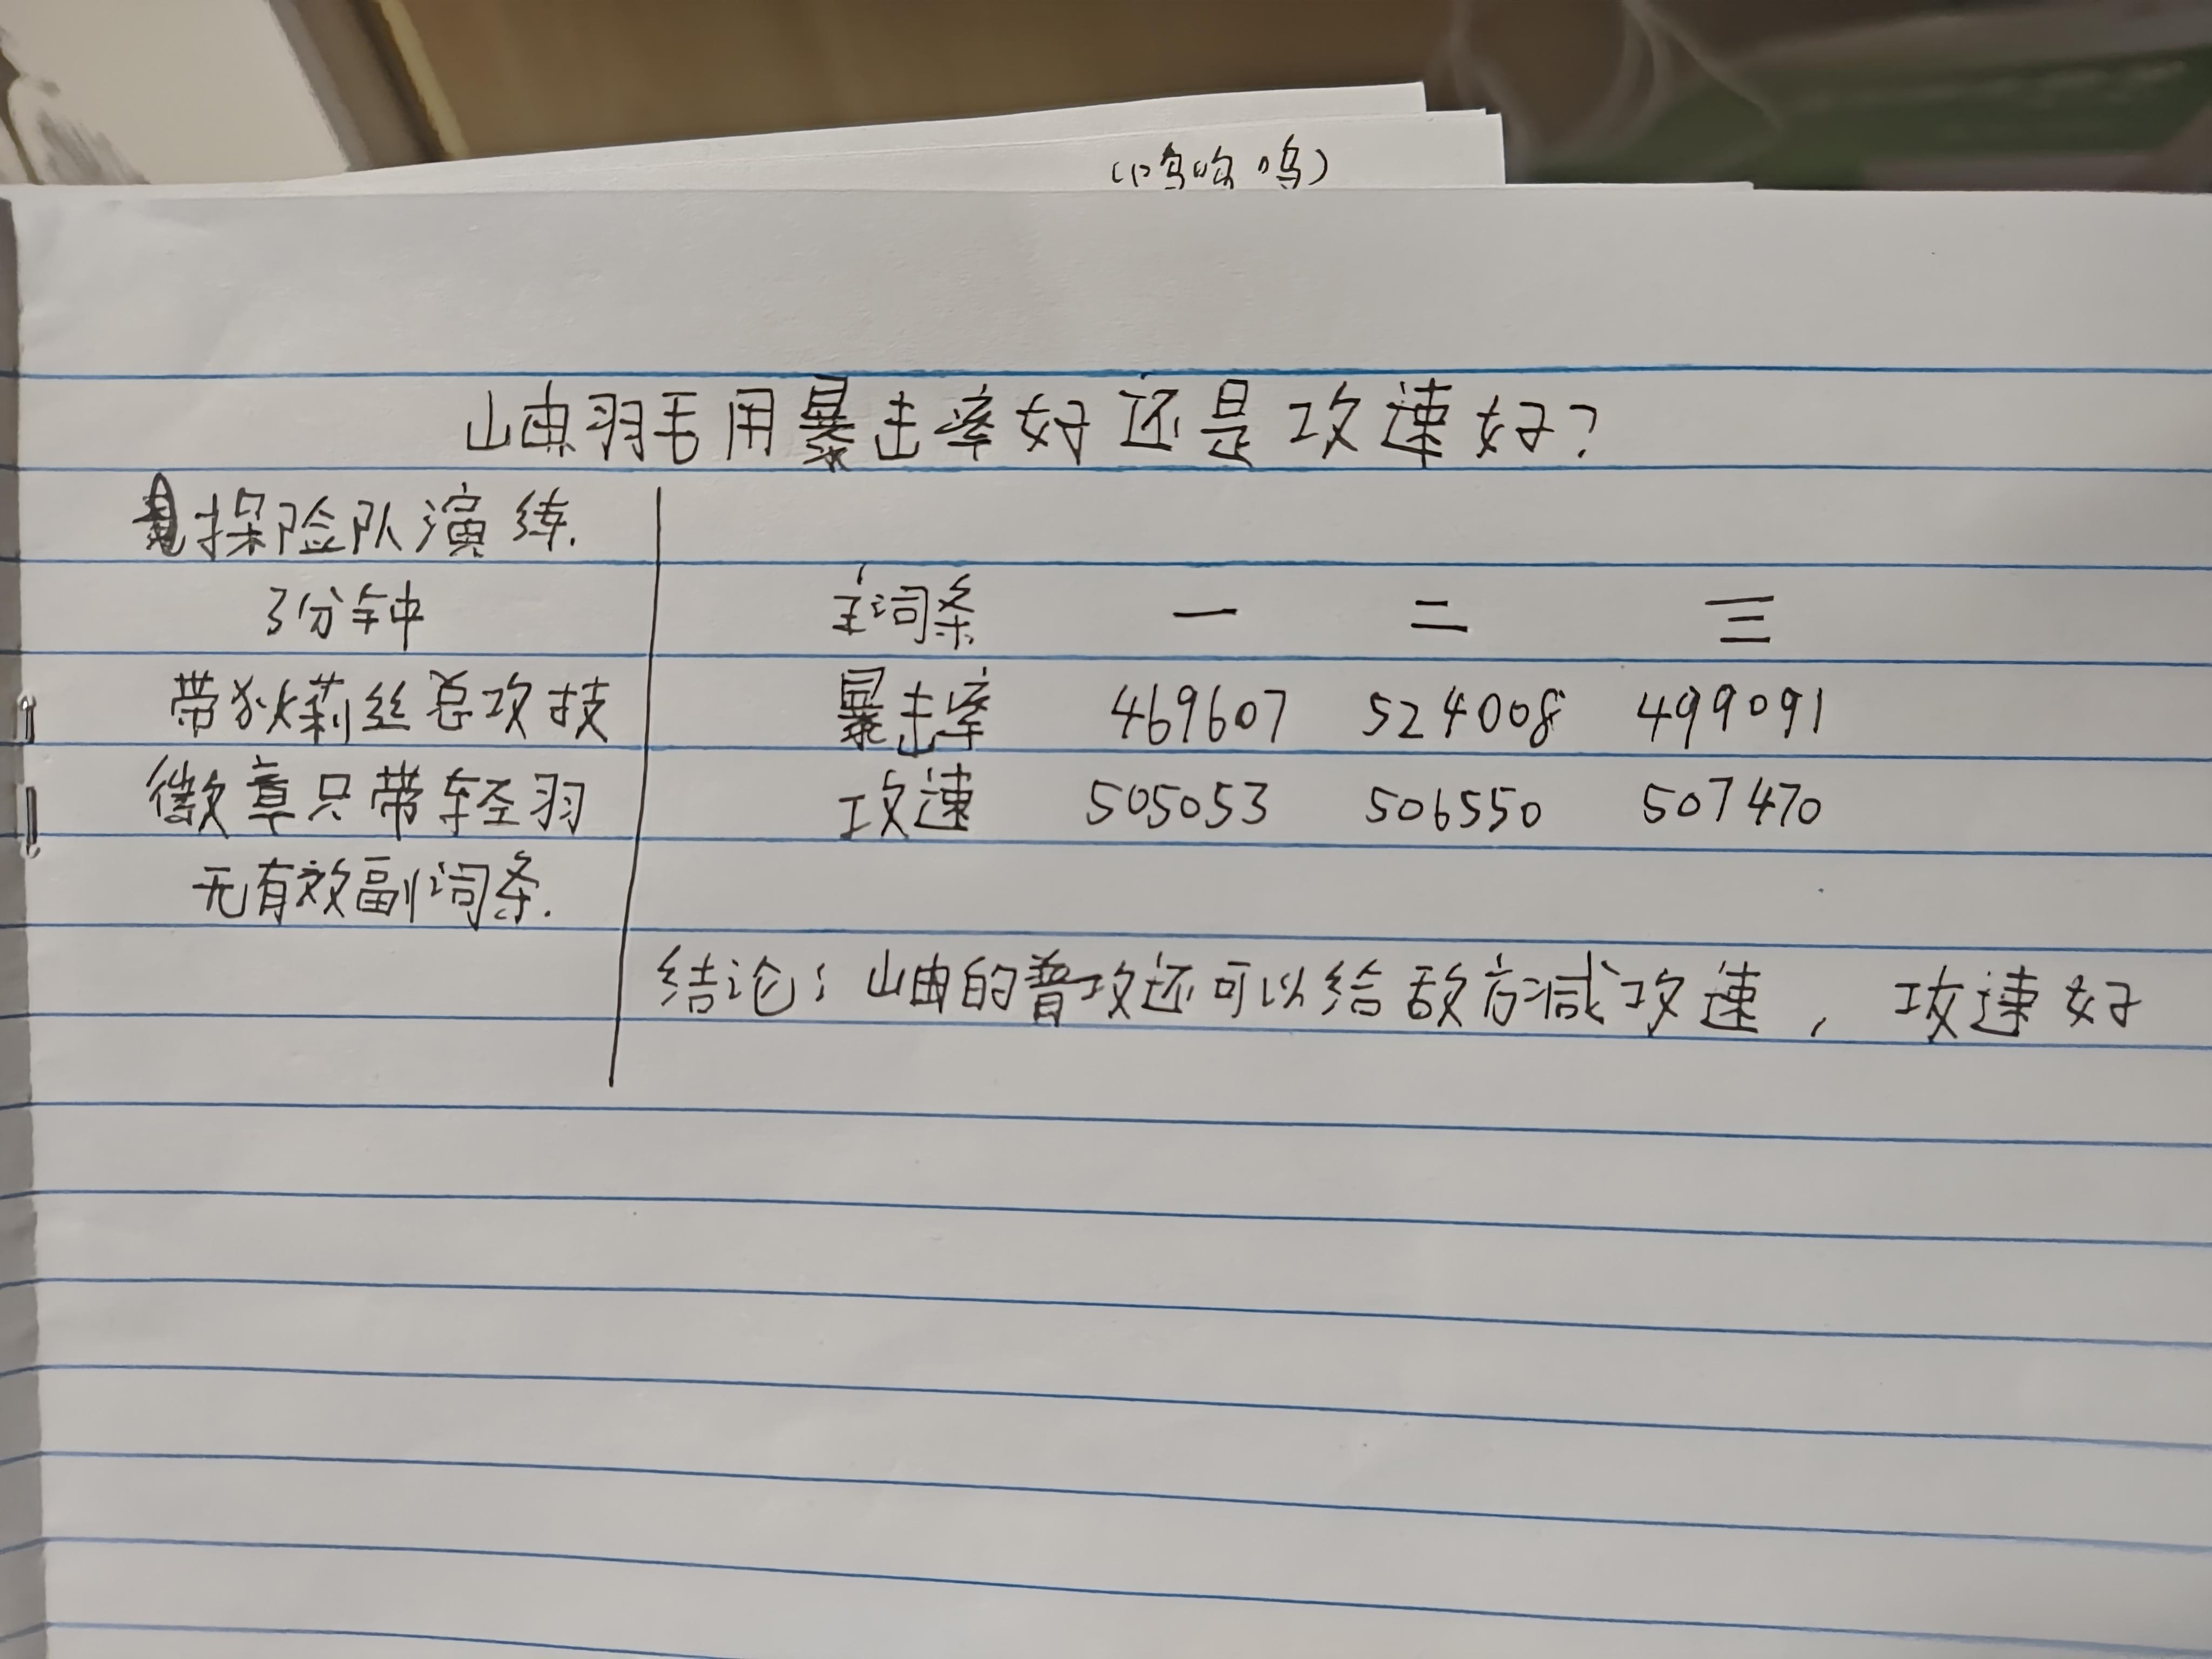 (呜呜呜)
山曲羽毛用暴击率好还是攻速好?
探险队演练.
3分钟
带狄莉丝总攻技
徽章只带轻羽
无有效副词条.
主词条 一 二 三
暴击率 469607 524008 499091
攻速 505053 506550 507470
结论:山曲的普攻还可以给敌方减攻速,攻速好